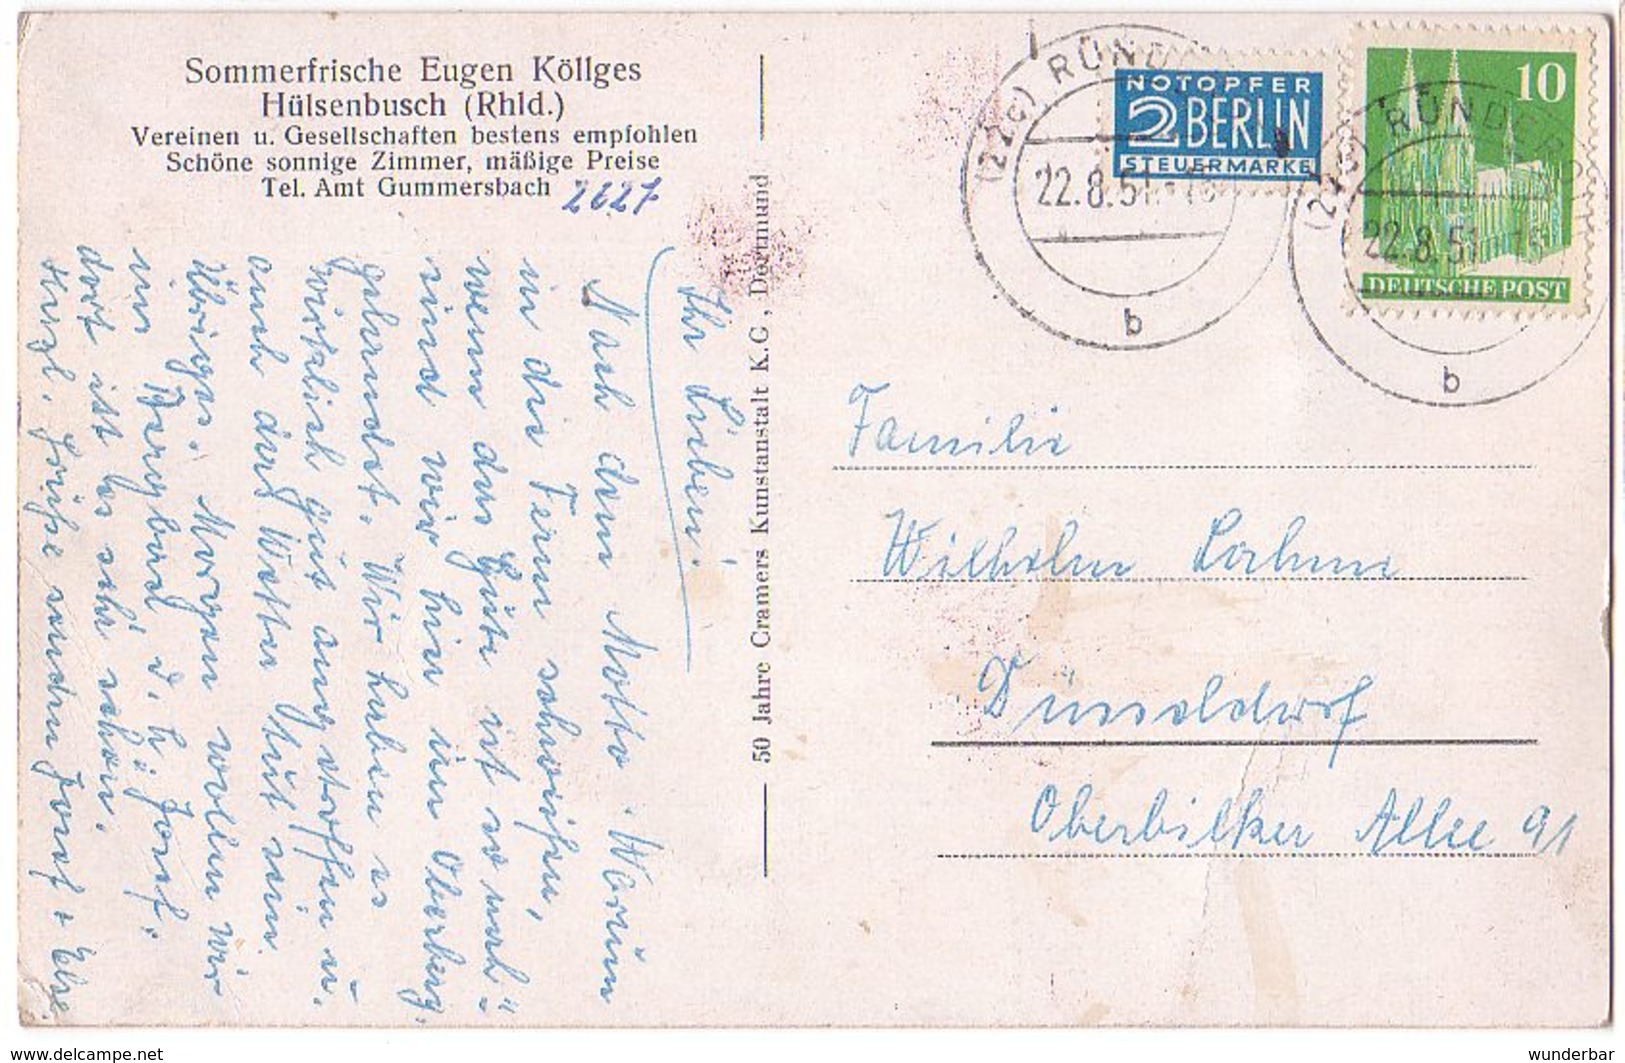 Sommerfrische Eugen Köllges
Hülsenbusch (Rhld.)
Vereinen u. Gesellschaften bestens empfohlen
Schöne sonnige Zimmer, mäßige Preise
Tel. Amt Gummersbach 2627
Ihr Lieben!
Nach dem Motto. Warum
in die Ferne schweifen,
wenn das Gute ist so nah"
sind wir hier im Oberberg.
gelandet. Wir haben es
wirklich gut angetroffen u.
auch das Wetter tut sein
Übriges. Morgen wollen wir
im
dort ist es sehr schön.
Herzl. Grüße senden Josef + Else
50 Jahre Cramers Kunstanstalt K.G., Dortmund
(22c) RÜNDEROTH
22.8.51.-18
b
NOTOPFER
2 BERLIN
STEUERMARKE
10
DEUTSCHE POST
(22c) RÜNDEROTH
22.8.51.-18
b
Familie
Wilhelm
Düsseldorf
Oberbilker Allee 91
delcampe.net
wunderbar